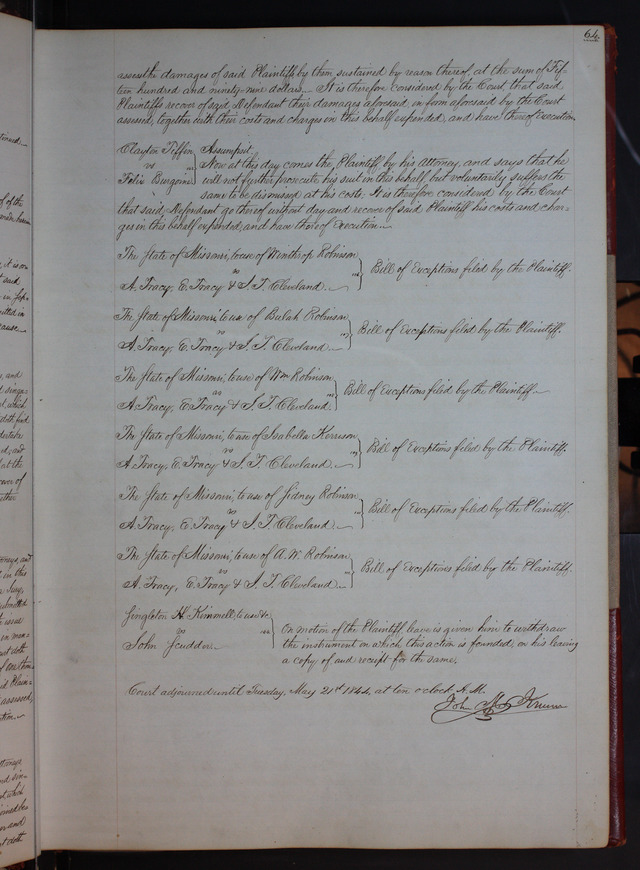 64.
assess the damages of said Plaintiffs by them sustained by reason thereof, at the sum of Fif-
teen hundred and ninety-nine dollars. It is therefore considered by the Court that said
Plaintiffs recover of said Defendant their damages aforesaid, in form aforesaid by the Court
assessed, together with their costs and charges in this behalf expended, and have thereof execution.
Clayton Tiffin
vs
Felix Burgoine
Assumpsit.
Now at this day comes the Plaintiff by his Attorney, and says that he
will not further prosecute his suit in this behalf, but voluntarily suffers the
same to be dismissed at his costs. It is therefore considered by the Court
that said Defendant go thereof without day and recover of said Plaintiff his costs and char-
ges in this behalf expended, and have thereof execution.
The State of Missouri, to use of Winthrop Robinson
vs
A. Tracy, E. Tracy & S. T. Cleveland.
Bill of Exceptions filed by the Plaintiff.
The State of Missouri, to use of Bulah Robinson
vs
A. Tracy, E. Tracy & S. T. Cleveland.
Bill of Exceptions filed by the Plaintiff.
The State of Missouri, to use of Wm Robinson
vs
A. Tracy, E. Tracy & S. T. Cleveland.
Bill of Exceptions filed by the Plaintiff.
The State of Missouri, to use of Isabella Kerrison
vs
A. Tracy, E. Tracy & S. T. Cleveland.
Bill of Exceptions filed by the Plaintiff.
The State of Missouri, to use of Sidney Robinson
vs
A. Tracy, E. Tracy & S. T. Cleveland.
Bill of Exceptions filed by the Plaintiff.
The State of Missouri, to use of A. W. Robinson
vs
A. Tracy, E. Tracy & S. T. Cleveland.
Bill of Exceptions filed by the Plaintiff.
Singleton H. Kimmell, to use &c
vs
John Scudder.
On motion of the Plaintiff, leave is given him to withdraw
the instrument on which this action is founded, on his leaving
a copy of and receipt for the same.
Court adjourned until Tuesday, May 21st 1844, at ten o'clock, A. M.
John M. Krum